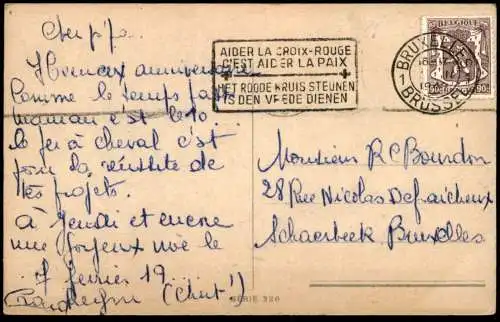 Cher p'pa
Heureux anniversaire
Comme le temps passe
maman c'est le 10
le fer à cheval c'est
pour la réussite de
tes projets.
à Jeudi et encore
une joyeux noë le
7 février 19
(Chut!)
AIDER LA CROIX-ROUGE
C'EST AIDER LA PAIX
HET ROODE KRUIS STEUNEN
IS DEN VREDE DIENEN
BRUXELLES
1
BRUSSEL
BELGIQUE
90c
90c
Monsieur R C Bourdon
28 Rue Nicolas Defraicheux
Schaerbeek Bruxelles
SÉRIE 320